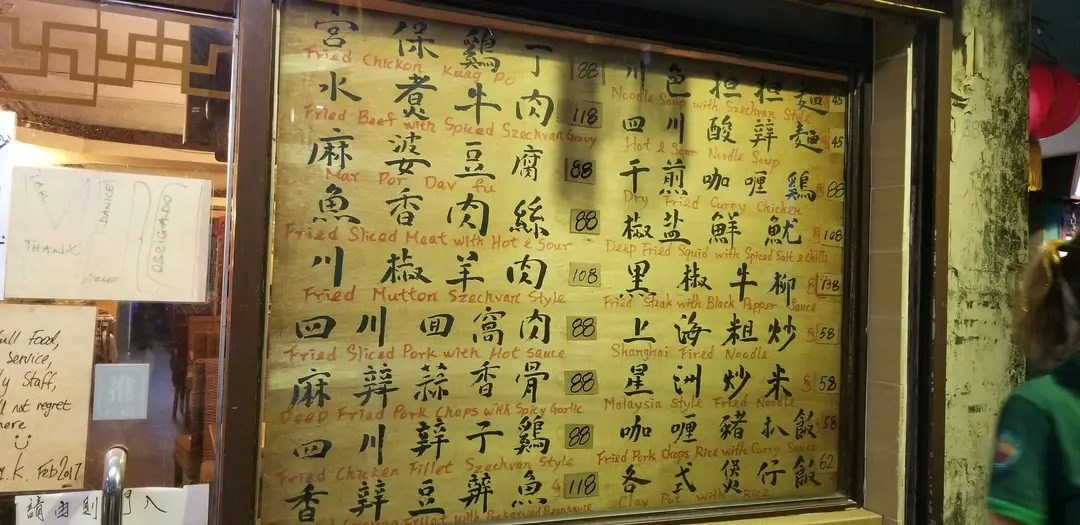 宮保鷄丁 88
Fried Chicken Kung Po
水煮牛肉 118
Fried Beef with Spiced Szechvan Gravy
麻婆豆腐 88
Mar Por Dav fu
魚香肉絲 88
Fried Sliced Meat with Hot & Sour
川椒羊肉 108
Fried Mutton Szechvan Style
四川回窩肉 88
Fried Sliced Pork with Hot sauce
麻辢蒜香骨 88
Deep Fried Pork Chops with Spicy Garlic
四川辢子鷄 88
Fried Chicken Fillet Szechvan Style
香辢豆瓣魚 118
Fillet with Preserved Beansauce
川色担担麵 45
Noodle Soup with Szechvan Style
四川酸辢麵 45
Hot & Sour Noodle Soup
干煎咖喱鷄 88
Dry Fried Curry Chicken
椒盐鮮魷 108
Deep Fried Squid with Spiced Salt & Chilli
黑椒牛柳 138
Fried Steak with Black Pepper Sauce
上海粗炒 58
Shanghai Fired Noodle
星洲炒米 58
Malaysia Style Fried Noodle
咖喱豬扒飯 58
Fried Pork Chops Rice with Curry Sauce
各式煲仔飯 62
Clay Pot with Rice
THANX
DANKE
OBRIGADO
Food,
Service,
Staff,
not regret
here
K. Feb 2017
請由則門入